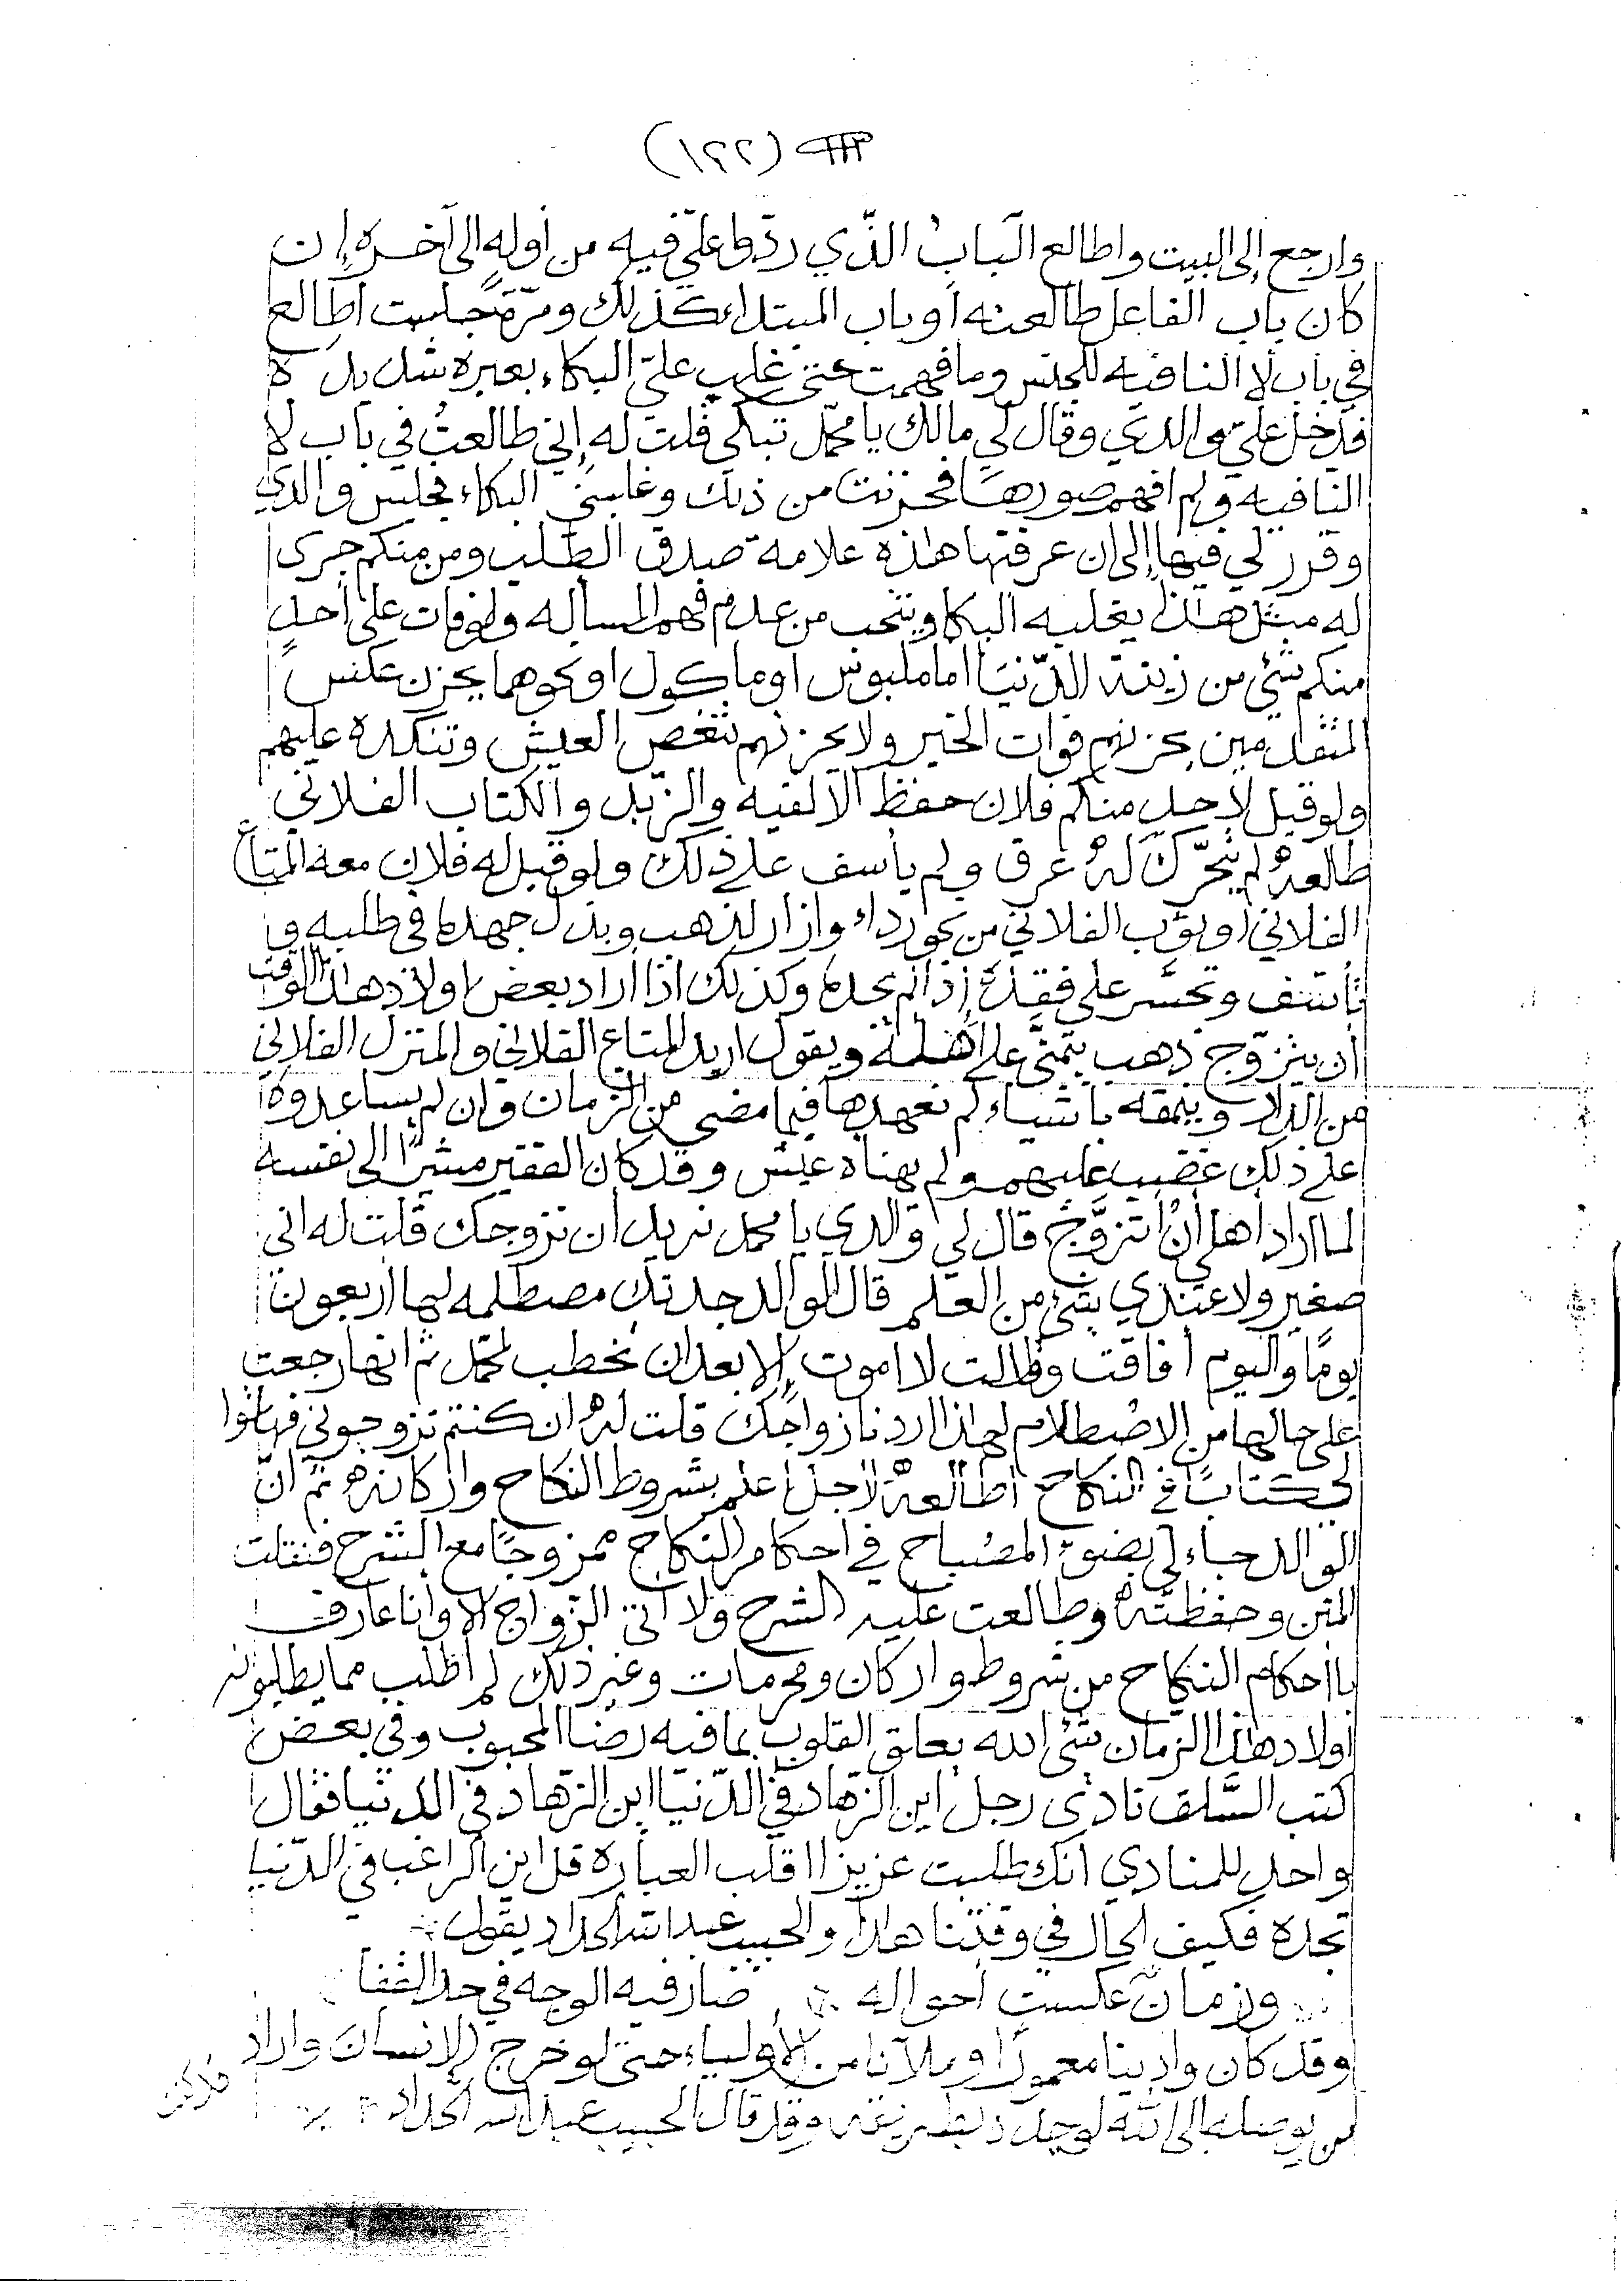 (١٢٢)
وارجع إلى البيت واطالع الباب الذّي ردّوا عليّ فيه من أوله الى آخره إن
كان باب الفاعل طالعته أو باب المبتداء كذلك ومرّة جلست أطالع
في باب لا النافيه للجنس وما فهمت حتى غلب عليّ البكاء بعبره شديدة
فدخل عليّ والدي وقال لي مالك يا محمّد تبكي قلت له إني طالعتُ في باب لا
النافيه ولم افهم صورها فحزنت من ذلك وغلبني البكاء فجلس والدي
وقرر لي فيها إلى ان عرفتها هذه علامة صدق الطلب ومن منكم جرى
له مثل هذا يغلبه البكا وينتحب من عدم فهم المسأله ولو فات على أحدٍ
منكم شئ من زينة الدّنيا اما ملبوس او ماكول او نحوهما يحزن عكس
المتقدمين يحزنهم فوات الخير ولا يحزنهم تنغص العيش وتنكده عليهم
ولو قيل لاحدٍ منكم فلان حفظ الالفيه والزّبد والكتاب الفلاني
طالعهُ لم يتحرّك لهُ عرق ولم يأسف على ذلك ولو قيل له فلان معه المتاع
الفلاني او ثوب الفلاني من نحو رداء وازار لذهب وبذل جهده في طلبه و
تأسف وتحسّر على فقده إذا لم يجده وكذلك اذا أراد بعض اولاد هذا الوقت
أن يتزوّج ذهب يتمنّى على أهله ويقول اريد المتاع الفلاني والمنزل الفلاني
من الدار وينمقه بأشياء لم نعهدها فيما مضى من الزمان وان لم يساعدوه
على ذلك غضب عليهم ولم يهناه عيش وقد كان الفقير مشيرًا الى نفسه
لما اراد اهلي أنْ أتزوَّج قال لي والدي يا محمد نريد ان نزوجك قلت له اني
صغير ولا عندي شئ من العلم قال الوالد جدتك مصطلمه لها اربعون
يومًا واليوم أفاقت وقالت لا اموت إلا بعد ان نخطب لمحمّد ثم انها رجعت
على حالها من الاصْطلام لهذا اردنا زواجك قلت لهُ ان كنتم تزوجوني فهاتوا
لي كتابًا في النكاح اطالعهُ لأجل اعلم بشروط النكاح واركانه ثم انّ
الوالد جاء لي بضوء المصْباح في احكام النكاح ممزوجًا مع الشرح فنقلت
المتن وحفظتهُ وطالعت عليه الشرح ولا أتى الزواج الا وانا عارف
باحكام النكاح من شروط واركان ومحرمات وغير ذلك لم أطلب مما يطلبونه
أولاد هذا الزمان شئ الله يعلق القلوب بما فيه رضا المحبوب وفي بعض
كتب السَّلف نادى رجل أين الزّهاد في الدّنيا اين الزهاد في الدنيا فقال
واحد للمنادي انك طلبت عزيزا اقلب العبارة قل اين الراغب في الدّنيا
تجده فكيف الحال في وقتنا هذا والحبيب عبد الله الحداد يقول
وزمان عكست أحواله ∴ صار فيه الوجه في حد القفا
وقد كان وادينا معمورًا وملآنا من الأولياء حتى لو خرج الإنسان واراد
من يوصله إلى الله لوجد بطريقه وقد قال الحبيب عبد الله الحداد